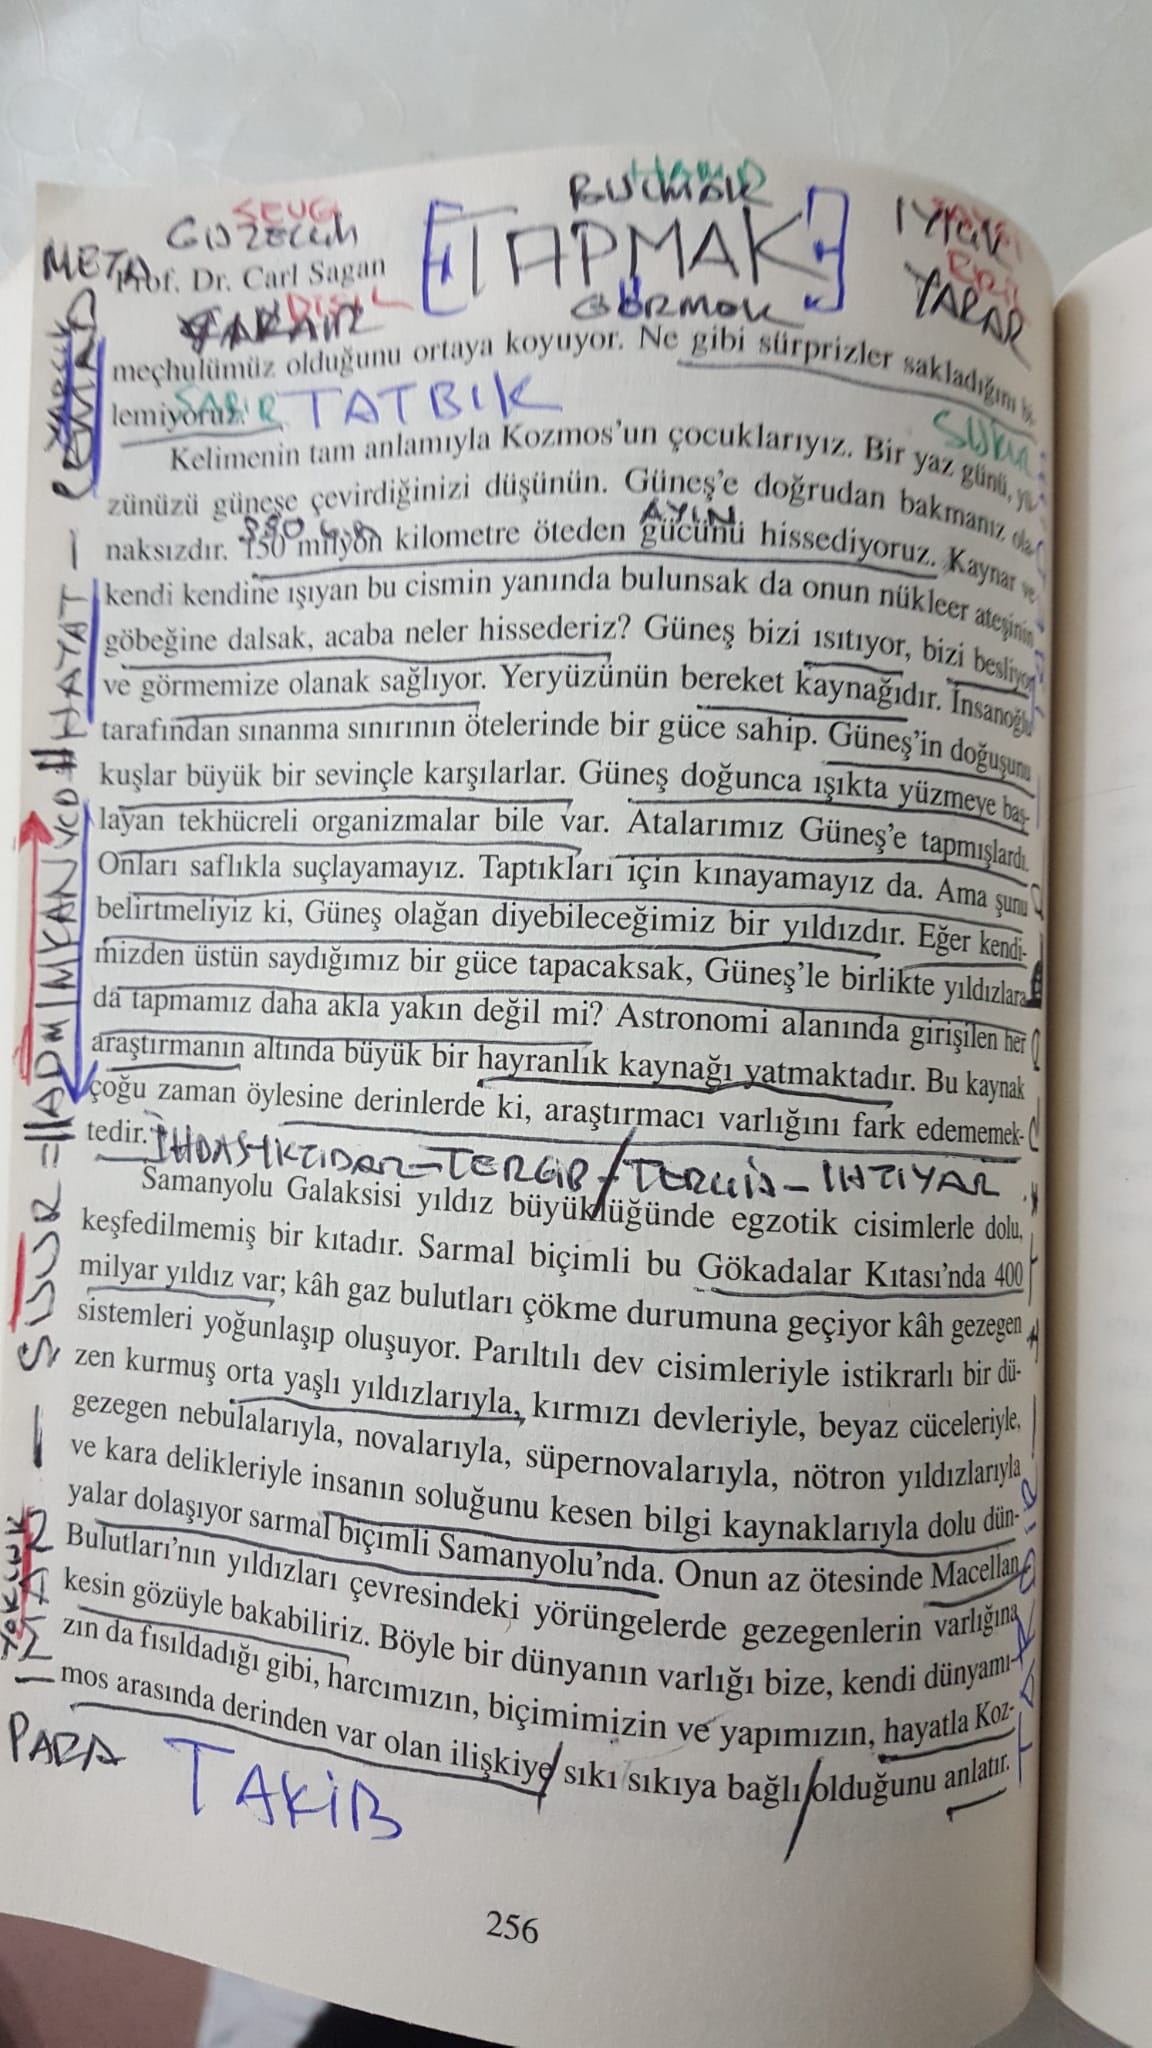 SEVGİ
GÜZELLİK
META
Prof. Dr. Carl Sagan
[TAPMAK]
GÖRMEK
YARAR
meçhulümüz olduğunu ortaya koyuyor. Ne gibi sürprizler sakladığını bi-
lemiyoruz.
SABIR TATBIK
Kelimenin tam anlamıyla Kozmos'un çocuklarıyız. Bir yaz günü, yü-
zünüzü güneşe çevirdiğinizi düşünün. Güneş'e doğrudan bakmanız ola-
AYIN
naksızdır. 150 milyon kilometre öteden gücünü hissediyoruz. Kaynar ve
kendi kendine ışıyan bu cismin yanında bulunsak da onun nükleer ateşinin
göbeğine dalsak, acaba neler hissederiz? Güneş bizi ısıtıyor, bizi besliyor
ve görmemize olanak sağlıyor. Yeryüzünün bereket kaynağıdır. İnsanoğlu
tarafından sınanma sınırının ötelerinde bir güce sahip. Güneş'in doğuşunu
kuşlar büyük bir sevinçle karşılarlar. Güneş doğunca ışıkta yüzmeye baş-
layan tekhücreli organizmalar bile var. Atalarımız Güneş'e tapmışlardı.
Onları saflıkla suçlayamayız. Taptıkları için kınayamayız da. Ama şunu
belirtmeliyiz ki, Güneş olağan diyebileceğimiz bir yıldızdır. Eğer kendi-
mizden üstün saydığımız bir güce tapacaksak, Güneş'le birlikte yıldızlara
da tapmamız daha akla yakın değil mi? Astronomi alanında girişilen her
araştırmanın altında büyük bir hayranlık kaynağı yatmaktadır. Bu kaynak
çoğu zaman öylesine derinlerde ki, araştırmacı varlığını fark edememek-
tedir.
İHDAS-İKTİDAR-TERGİB/TERCİH-İHTİYAR
Samanyolu Galaksisi yıldız büyüklüğünde egzotik cisimlerle dolu,
keşfedilmemiş bir kıtadır. Sarmal biçimli bu Gökadalar Kıtası'nda 400
milyar yıldız var; kâh gaz bulutları çökme durumuna geçiyor kâh gezegen
sistemleri yoğunlaşıp oluşuyor. Parıltılı dev cisimleriyle istikrarlı bir dü-
zen kurmuş orta yaşlı yıldızlarıyla, kırmızı devleriyle, beyaz cüceleriyle,
gezegen nebülalarıyla, novalarıyla, süpernovalarıyla, nötron yıldızlarıyla
ve kara delikleriyle insanın soluğunu kesen bilgi kaynaklarıyla dolu dün-
yalar dolaşıyor sarmal biçimli Samanyolu'nda. Onun az ötesinde Macellan
Bulutları'nın yıldızları çevresindeki yörüngelerde gezegenlerin varlığına
kesin gözüyle bakabiliriz. Böyle bir dünyanın varlığı bize, kendi dünyamı-
zın da fısıldadığı gibi, harcımızın, biçimimizin ve yapımızın, hayatla Koz-
mos arasında derinden var olan ilişkiye sıkı sıkıya bağlı olduğunu anlatır.
PARA TAKİB
256